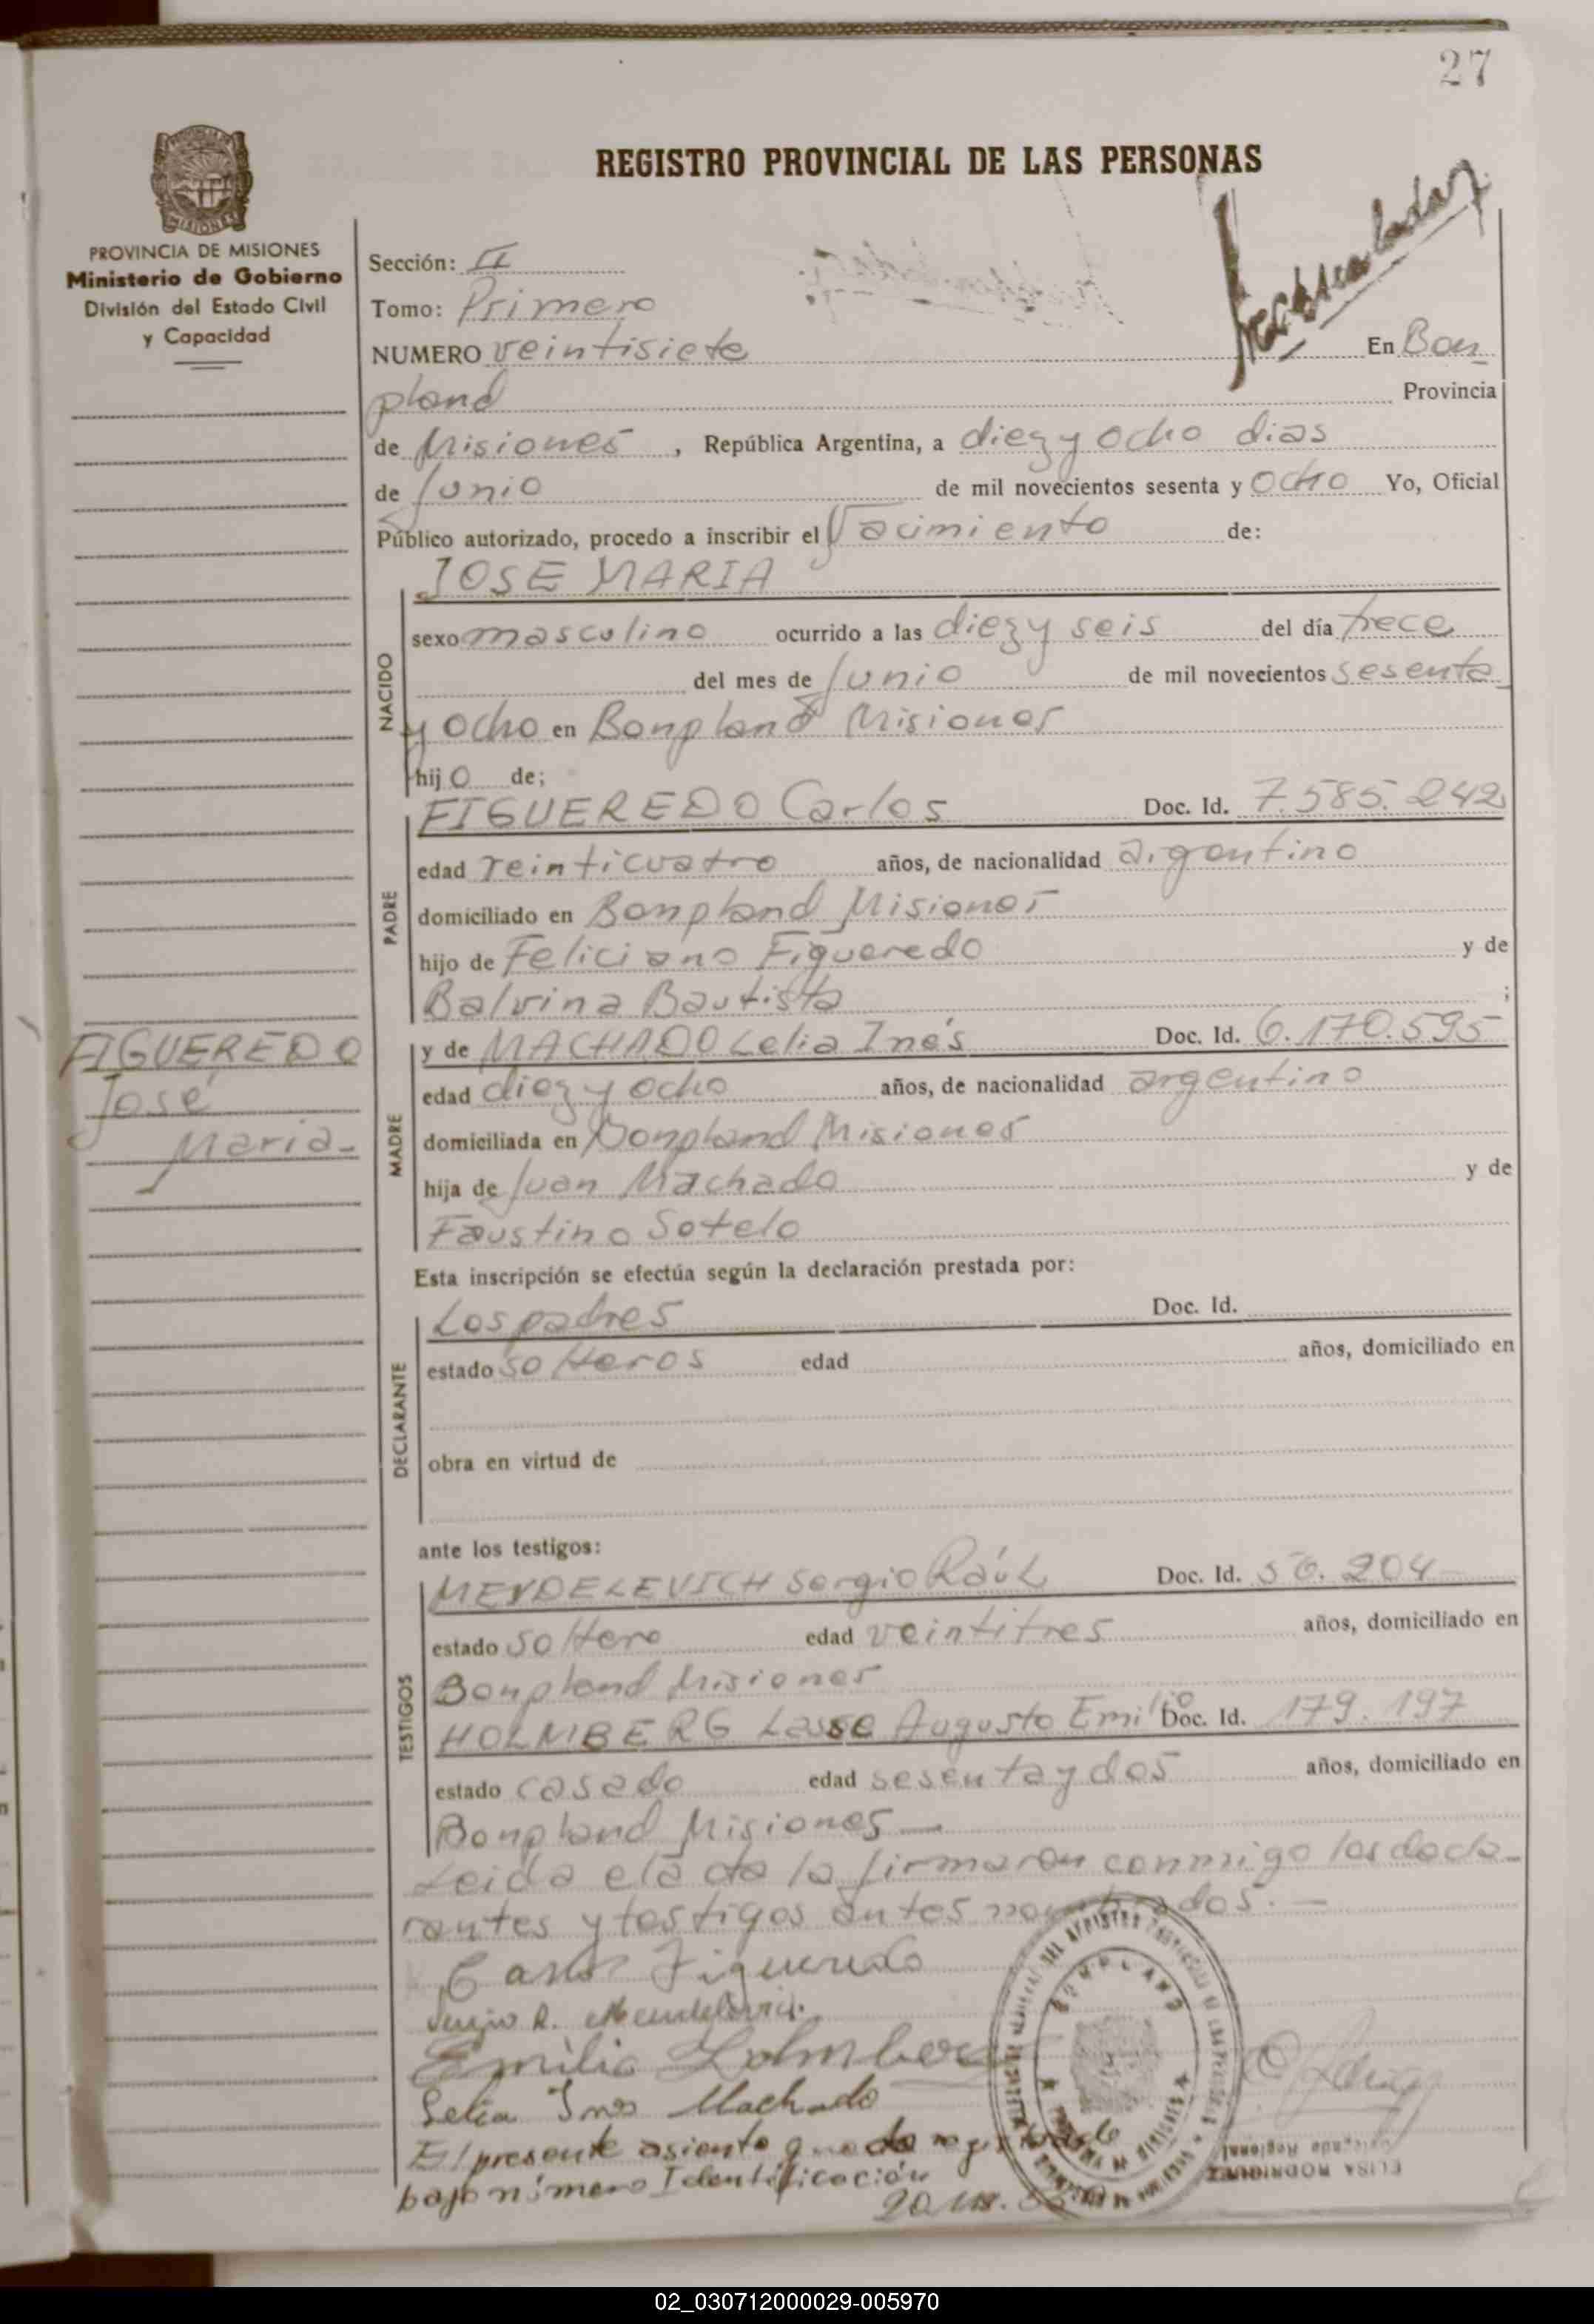 27
REGISTRO PROVINCIAL DE LAS PERSONAS
PROVINCIA DE MISIONES
Ministerio de Gobierno
División del Estado Civil
y Capacidad
Sección: II
Tomo: Primero
NUMERO veintisiete En Bon
pland Provincia
de Misiones, República Argentina, a diez y ocho dias
de Junio de mil novecientos sesenta y ocho Yo, Oficial
Público autorizado, procedo a inscribir el Nacimiento de:
JOSE MARIA
NACIDO
sexo masculino ocurrido a las diez y seis del día trece
del mes de Junio de mil novecientos sesenta
y ocho en Bonpland Misiones
hijo de;
PADRE
FIGUEREDO Carlos Doc. Id. 7.585.242
edad veinticuatro años, de nacionalidad argentino
domiciliado en Bonpland Misiones
hijo de Feliciano Figueredo y de
Balvina Bautista ;
FIGUEREDO
José
Maria-
MADRE
y de MACHADO Lelia Inés Doc. Id. 6.170.595
edad diez y ocho años, de nacionalidad argentino
domiciliada en Bonpland Misiones
hija de Juan Machado y de
Faustino Sotelo
Esta inscripción se efectúa según la declaración prestada por:
DECLARANTE
Los padres Doc. Id.
estado solteros edad años, domiciliado en
obra en virtud de
ante los testigos:
TESTIGOS
MENDELEVICH Sergio Raúl Doc. Id. 50.204
estado soltero edad veintitres años, domiciliado en
Bonpland Misiones
HOLMBERG Lasse Augusto Emilio Doc. Id. 179.197
estado casado edad sesenta y dos años, domiciliado en
Bonpland Misiones —
Leida el acta la firmaron conmigo los decla-
rantes y testigos antes nombrados. —
Carlos Figueredo
Sergio R. Mendelevich
Emilio Holmberg
Lelia Ines Machado
BONPLAND
ELISA RODRIGUEZ
Delegada Regional
El presente asiento queda registrado
bajo número Identificación
20.
02_030712000029-005970